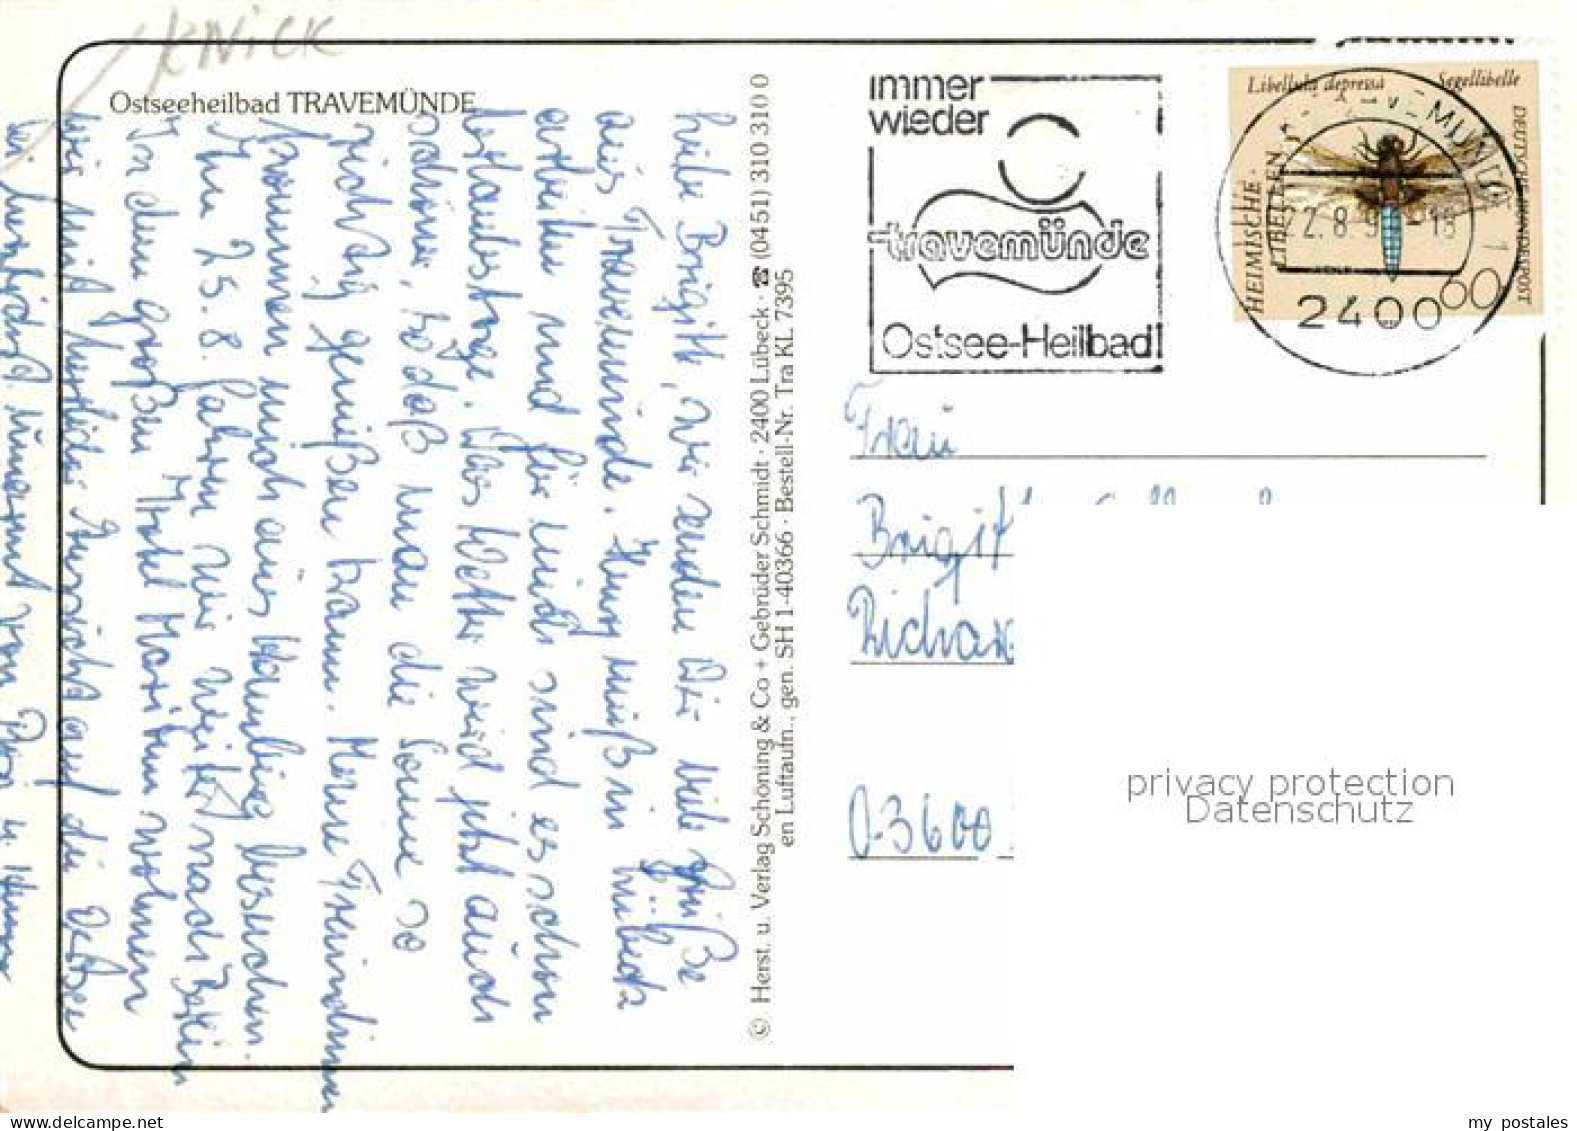 KNICK
Ostseeheilbad TRAVEMÜNDE
Liebe Brigitt, wir senden Dir viele Grüße
aus Travemünde. Henry muß in Lübeck
arbeiten und für mich sind es schon
Urlaubstage. Das Wetter wird jetzt auch
schöner, so daß man die Sonne so
richtig genießen kann. Meine Freundinnen
kommen mich aus Hamburg besuchen.
Am 25.8. fahren wir weiter nach Berlin
In dem großen Hotel Maritim wohnen
wir mit herrlicher Aussicht auf die Ostsee
Sei herzlichst umarmt von u. Henry
© Herst. u. Verlag Schöning & Co + Gebrüder Schmidt · 2400 Lübeck · ☎ (0451) 310 310 0
en Luftaufn., gen. SH 1-40366 · Bestell-Nr. Tra KL 7395
immer
wieder
travemünde
Ostsee-Heilbad!
Libellula depressa Segellibelle
HEIMISCHE
LIBELLEN
DEUTSCHE BUNDESPOST
60
TRAVEMÜNDE 1
22.8.9 -18
2400
Frau
Brigit
Richar
O-3600
privacy protection
Datenschutz
my postales